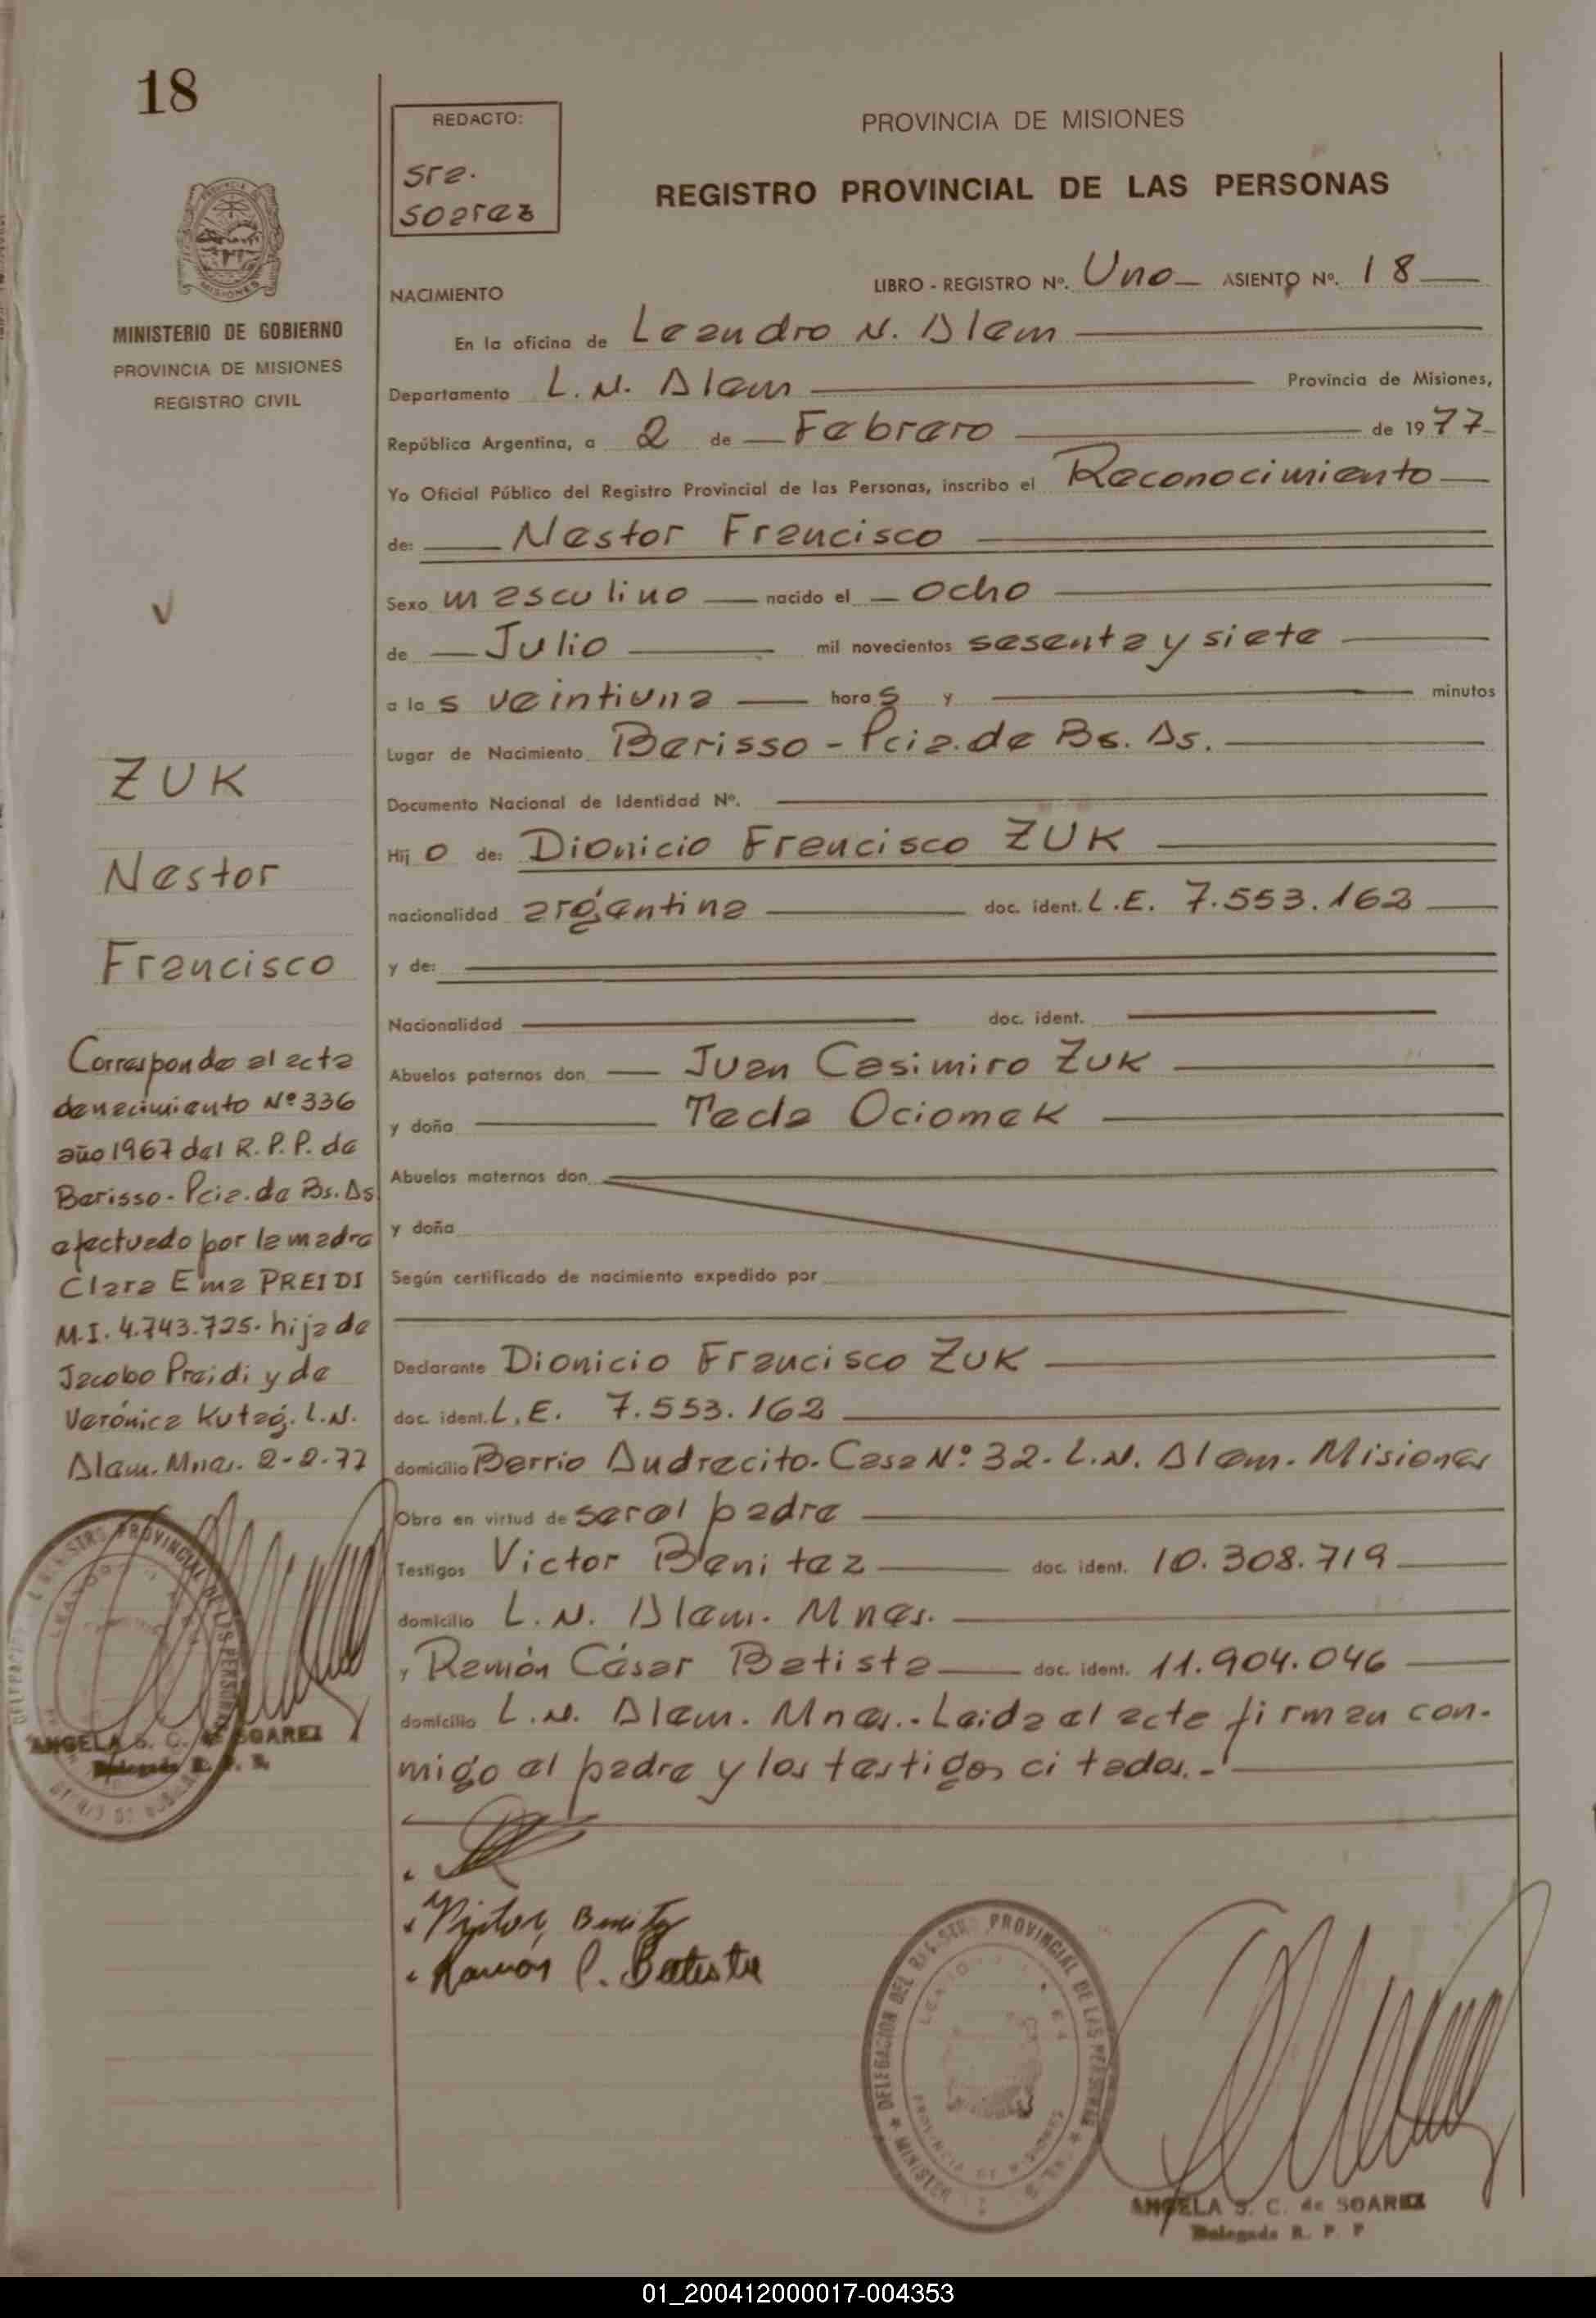 18
REDACTO:
Sra.
Soarez
PROVINCIA DE MISIONES
REGISTRO PROVINCIAL DE LAS PERSONAS
MISIONES
MINISTERIO DE GOBIERNO
PROVINCIA DE MISIONES
REGISTRO CIVIL
NACIMIENTO
LIBRO - REGISTRO Nº. Uno ASIENTO Nº. 18
En la oficina de Leandro N. Alem
Departamento L. N. Alem Provincia de Misiones,
República Argentina, a 2 de Febrero de 1977
Yo Oficial Público del Registro Provincial de las Personas, inscribo el Reconocimiento
de: Nestor Francisco
Sexo masculino nacido el Ocho
de Julio mil novecientos sesenta y siete
a las veintiuna horas y minutos
Lugar de Nacimiento Berisso - Pcia. de Bs. As.
Documento Nacional de Identidad Nº.
Hijo de: Dionicio Francisco ZUK
nacionalidad argentina doc. ident. L.E. 7.553.162
y de:
Nacionalidad doc. ident.
Abuelos paternos don Juan Casimiro ZUK
y doña Tecla Ociomek
Abuelos maternos don
y doña
Según certificado de nacimiento expedido por
Declarante Dionicio Francisco ZUK
doc. ident. L.E. 7.553.162
domicilio Barrio Andrecito. Casa Nº 32. L.N. Alem. Misiones
Obra en virtud de ser el padre
Testigos Victor Benitez doc. ident. 10.308.719
domicilio L.N. Alem. Mnes.
y Ramón César Batista doc. ident. 11.904.046
domicilio L.N. Alem. Mnes.- Leida el acta firman con-
migo el padre y los testigos citados.-
ZUK
Nestor
Francisco
Corresponde al acta
de nacimiento Nº 336
año 1967 del R.P.P. de
Berisso - Pcia. de Bs. As
efectuado por la madre
Clara Ema PREIDI
M.I. 4.743.725. hija de
Jacobo Preidi y de
Verónica Kutag. L.N.
Alem. Mnes. 2-2-77
ANGELA S. C. de SOAREZ
Delegada R. P. P.
Victor, Benitez
Ramón C. Batista
DELEGACION DEL REGISTRO PROVINCIAL DE LAS PERSONAS
PROVINCIA DE MISIONES
ANGELA S. C. de SOAREZ
Delegada R. P. P
01_200412000017-004353